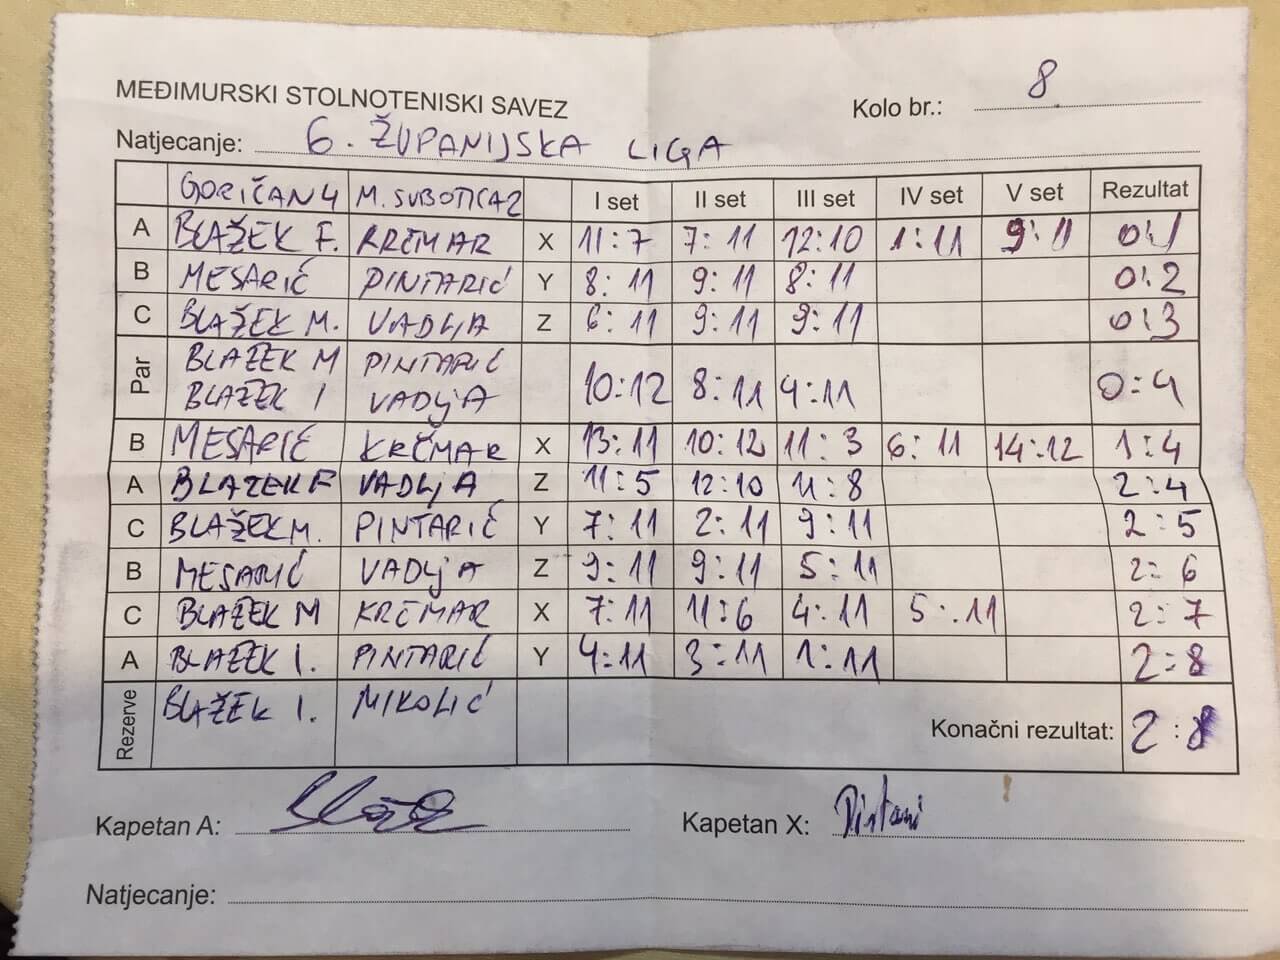 MEĐIMURSKI STOLNOTENISKI SAVEZ
Kolo br.: 8.
Natjecanje: 6. ŽUPANIJSKA LIGA
GORIČAN 4 M. SUBOTICA 2 I set II set III set IV set V set Rezultat
A BLAŽEK F. KRČMAR X 11:7 7:11 12:10 1:11 9:11 0:1
B MESARIĆ PINTARIĆ Y 8:11 9:11 8:11 0:2
C BLAŽEK M. VADLJA Z 6:11 9:11 9:11 0:3
Par BLAŽEK M PINTARIĆ
BLAŽEK I VADLJA 10:12 8:11 4:11 0:4
B MESARIĆ KRČMAR X 13:11 10:12 11:3 6:11 14:12 1:4
A BLAZEK F VADLJA Z 11:5 12:10 11:8 2:4
C BLAŽEK M. PINTARIĆ Y 7:11 2:11 9:11 2:5
B MESARIĆ VADLJA Z 9:11 9:11 5:11 2:6
C BLAŽEK M KRČMAR X 7:11 11:6 4:11 5:11 2:7
A BLAŽEK I. PINTARIĆ Y 4:11 3:11 1:11 2:8
Rezerve BLAŽEK I. MIKOLIĆ
Konačni rezultat: 2:8
Kapetan A:
Kapetan X:
Natjecanje: